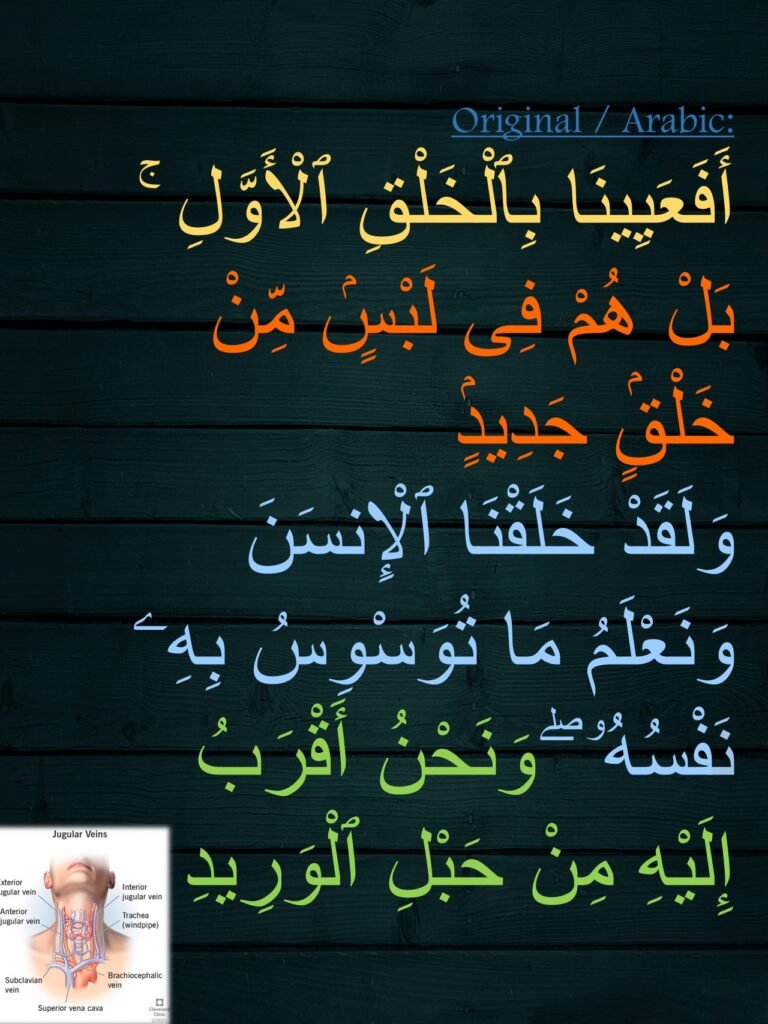 Original / Arabic:
أَفَعَيِينَا بِٱلْخَلْقِ ٱلْأَوَّلِ ۚ
بَلْ هُمْ فِى لَبْسٍۢ مِّنْ
خَلْقٍۢ جَدِيدٍۢ
وَلَقَدْ خَلَقْنَا ٱلْإِنسَنَ
وَنَعْلَمُ مَا تُوَسْوِسُ بِهِۦ
نَفْسُهُۥ ۖ وَنَحْنُ أَقْرَبُ
إِلَيْهِ مِنْ حَبْلِ ٱلْوَرِيدِ
Jugular Veins
xterior
ugular vein
Interior
jugular vein
Anterior
jugular vein
Trachea
(windpipe)
Subclavian
vein
Brachiocephalic
vein
Superior vena cava
Cleveland
Clinic